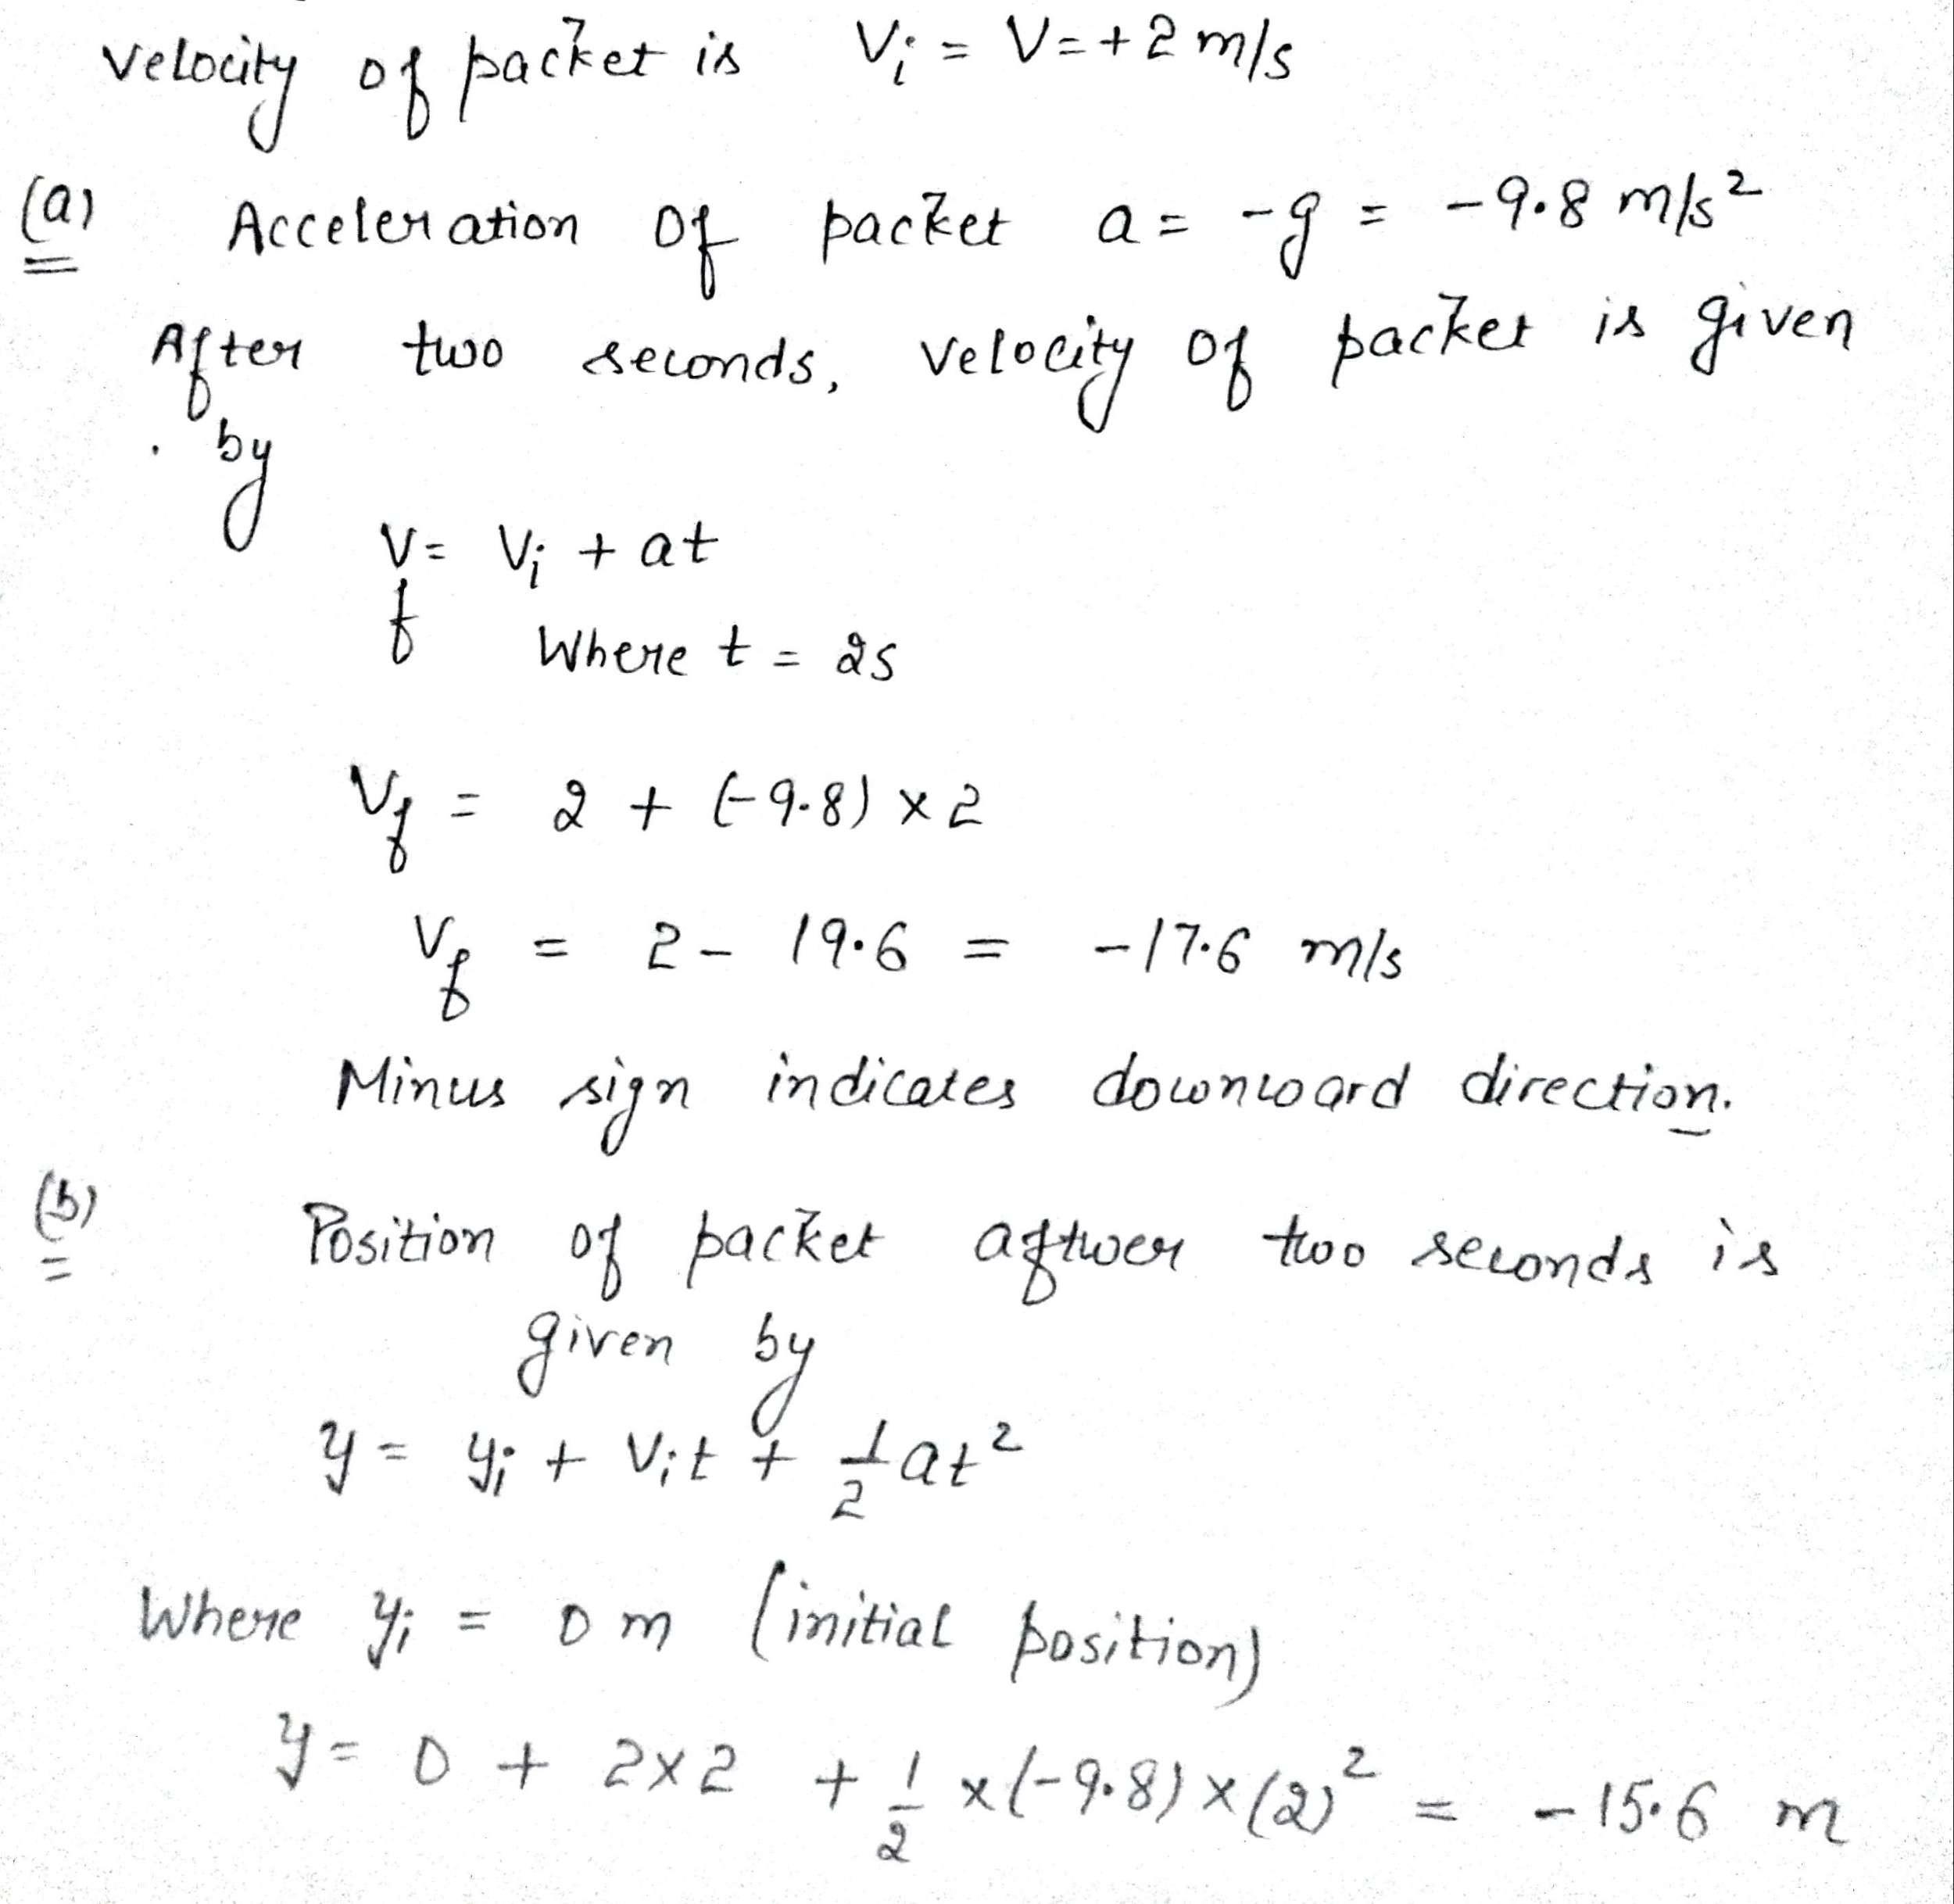 velocity of packet is Vi = V = +2 m/s
(a) Acceleration of packet a = -g = -9.8 m/s²
After two seconds, velocity of packet is given
by
Vf = Vi + at
Where t = 2s
Vf = 2 + (-9.8) × 2
Vf = 2 - 19.6 = -17.6 m/s
Minus sign indicates downward direction.
(b) Position of packet aftwer two seconds is
given by
y = yi + Vit + 1/2 at²
Where yi = 0 m (initial position)
y = 0 + 2×2 + 1/2 ×(-9.8)×(2)² = -15.6 m